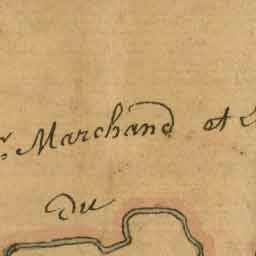 Marchand et
Du